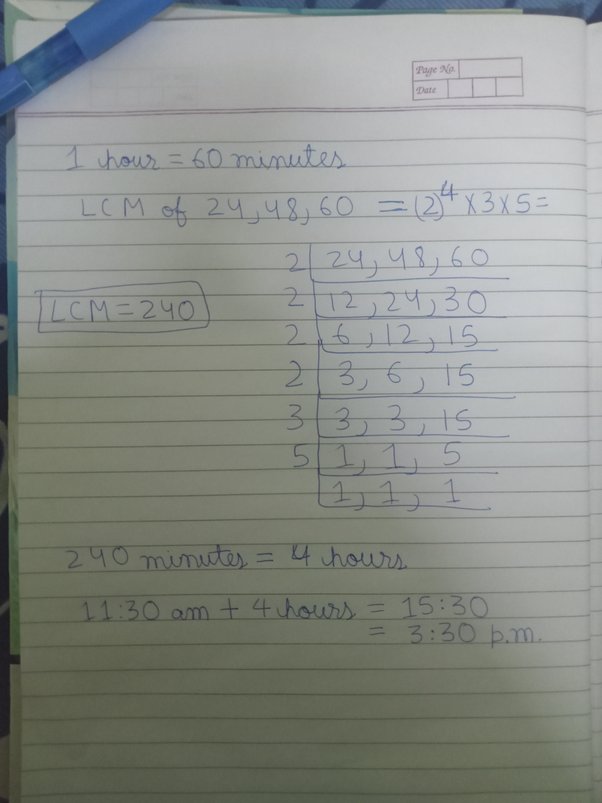 Page No.
Date
1 hour = 60 minutes
LCM of 24, 48, 60 = (2)⁴ × 3 × 5 =
2 | 24, 48, 60
LCM = 240
2 | 12, 24, 30
2 | 6, 12, 15
2 | 3, 6, 15
3 | 3, 3, 15
5 | 1, 1, 5
1, 1, 1
240 minutes = 4 hours
11:30 am + 4 hours = 15:30
= 3:30 p.m.